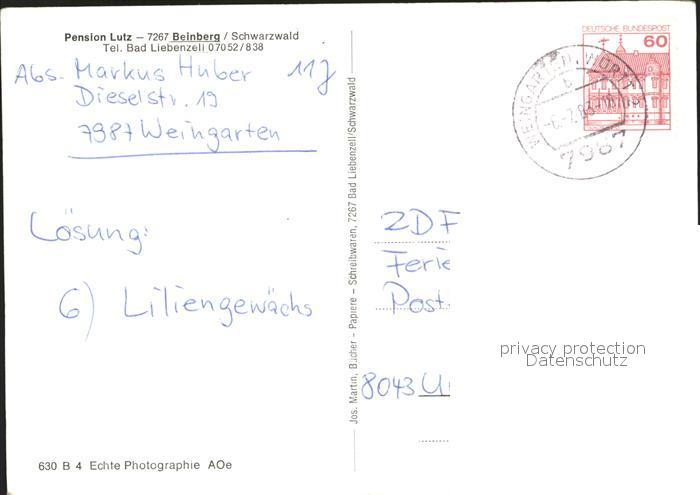 Pension Lutz – 7267 Beinberg / Schwarzwald
Tel. Bad Liebenzell 07052/838
Abs. Markus Huber 11J
Dieselstr. 19
7987 Weingarten
Lösung:
6) Liliengewächs
630 B 4 Echte Photographie AOe
Jos. Martin, Bücher - Papiere – Schreibwaren, 7267 Bad Liebenzell/Schwarzwald
DEUTSCHE BUNDESPOST
60
WEINGARTEN, WÜRTT
b
7987
ZDF
Ferie
Post
8043 U
privacy protection
Datenschutz